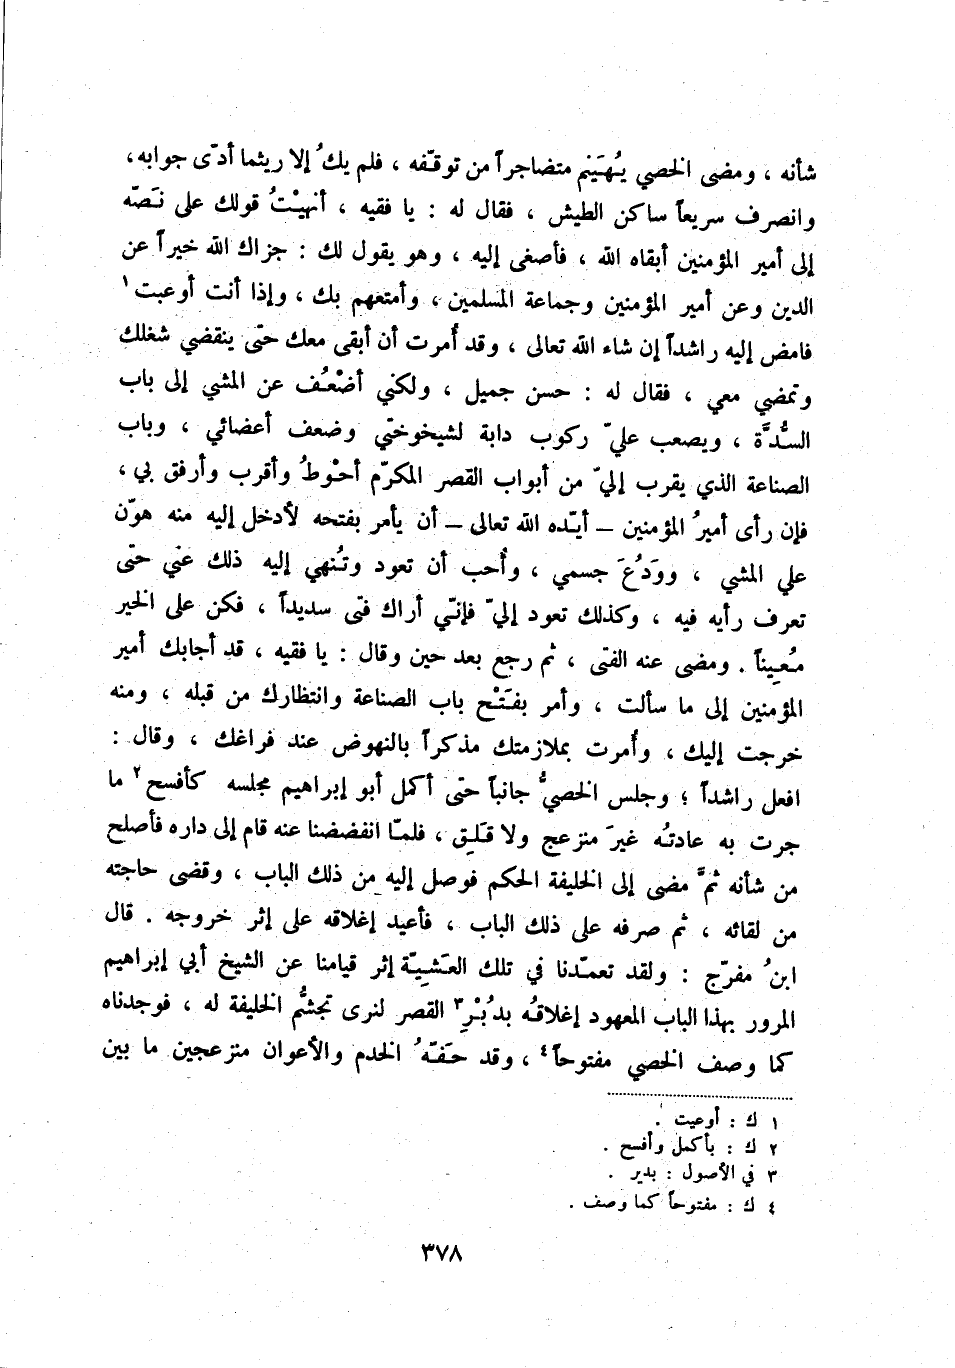 شأنه ، ومضى الخصي يُهَيْنم متضاجراً من توقّفه ، فلم يكُ إلا ريثما أدّى جوابه ،
وانصرف سريعاً ساكن الطيش ، فقال له : يا فقيه ، أنهيْتُ قولك على نَصّه
إلى أمير المؤمنين أبقاه الله ، فأصغى إليه ، وهو يقول لك : جزاك الله خيراً عن
الدين وعن أمير المؤمنين وجماعة المسلمين ، وأمتعهم بك ، وإذا أنت أوعبت١
فامض إليه راشداً إن شاء الله تعالى ، وقد أُمرت أن أبقى معك حتّى ينقضي شغلك
وتمضي معي ، فقال له : حسن جميل ، ولكني أضْعُف عن المشي إلى باب
السُّدَّة ، ويصعب عليّ ركوب دابة لشيخوختي وضعف أعضائي ، وباب
الصناعة الذي يقرب إليّ من أبواب القصر المكرّم أحْوطُ وأقرب وأرفق بي ،
فإن رأى أميرُ المؤمنين – أيّده الله تعالى – أن يأمر بفتحه لأدخل إليه منه هوّن
علي المشي ، ووَدُعَ جسمي ، وأُحب أن تعود وتُنهي إليه ذلك عنّي حتّى
تعرف رأيه فيه ، وكذلك تعود إليّ فإنّي أراك فتى سديداً ، فكن على الخير
مُعِيناً . ومضى عنه الفتى ، ثم رجع بعد حين وقال : يا فقيه ، قد أجابك أمير
المؤمنين إلى ما سألت ، وأمر بفَتْح باب الصناعة وانتظارك من قبله ، ومنه
خرجت إليك ، وأُمرت بملازمتك مذكراً بالنهوض عند فراغك ، وقال :
افعل راشداً ؛ وجلس الخصيُّ جانباً حتى أكمل أبو إبراهيم مجلسه كأفسح٢ ما
جرت به عادتُه غيرَ منزعج ولا قَلِق ، فلمّا انفضضنا عنه قام إلى داره فأصلح
من شأنه ثمَّ مضى إلى الخليفة الحكم فوصل إليه من ذلك الباب ، وقضى حاجته
من لقائه ، ثم صرفه على ذلك الباب ، فأعيد إغلاقه على إثر خروجه . قال
ابنُ مفرّج : ولقد تعمّدنا في تلك العَشِيّة إثر قيامنا عن الشيخ أبي إبراهيم
المرور بهذا الباب المعهود إغلاقُه بدُبْرِ٣ القصر لنرى تجشُّم الخليفة له ، فوجدناه
كما وصف الخصي مفتوحاً٤ ، وقد حَفّهُ الخدم والأعوان منزعجين ما بين
١ ك : أوعيت .
٢ ك : بأكمل وأفسح .
٣ في الأصول : بدير .
٤ ك : مفتوحاً كما وصف .
٣٧٨